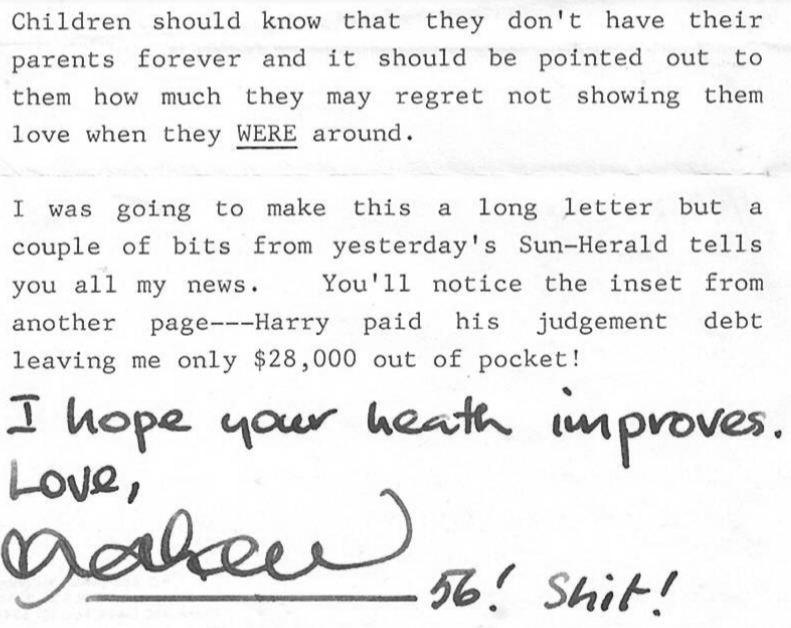 Children should know that they don't have their
parents forever and it should be pointed out to
them how much they may regret not showing them
love when they WERE around.
I was going to make this a long letter but a
couple of bits from yesterday's Sun-Herald tells
you all my news. You'll notice the inset from
another page---Harry paid his judgement debt
leaving me only $28,000 out of pocket!
I hope your heath improves.
Love,
56! Shit!